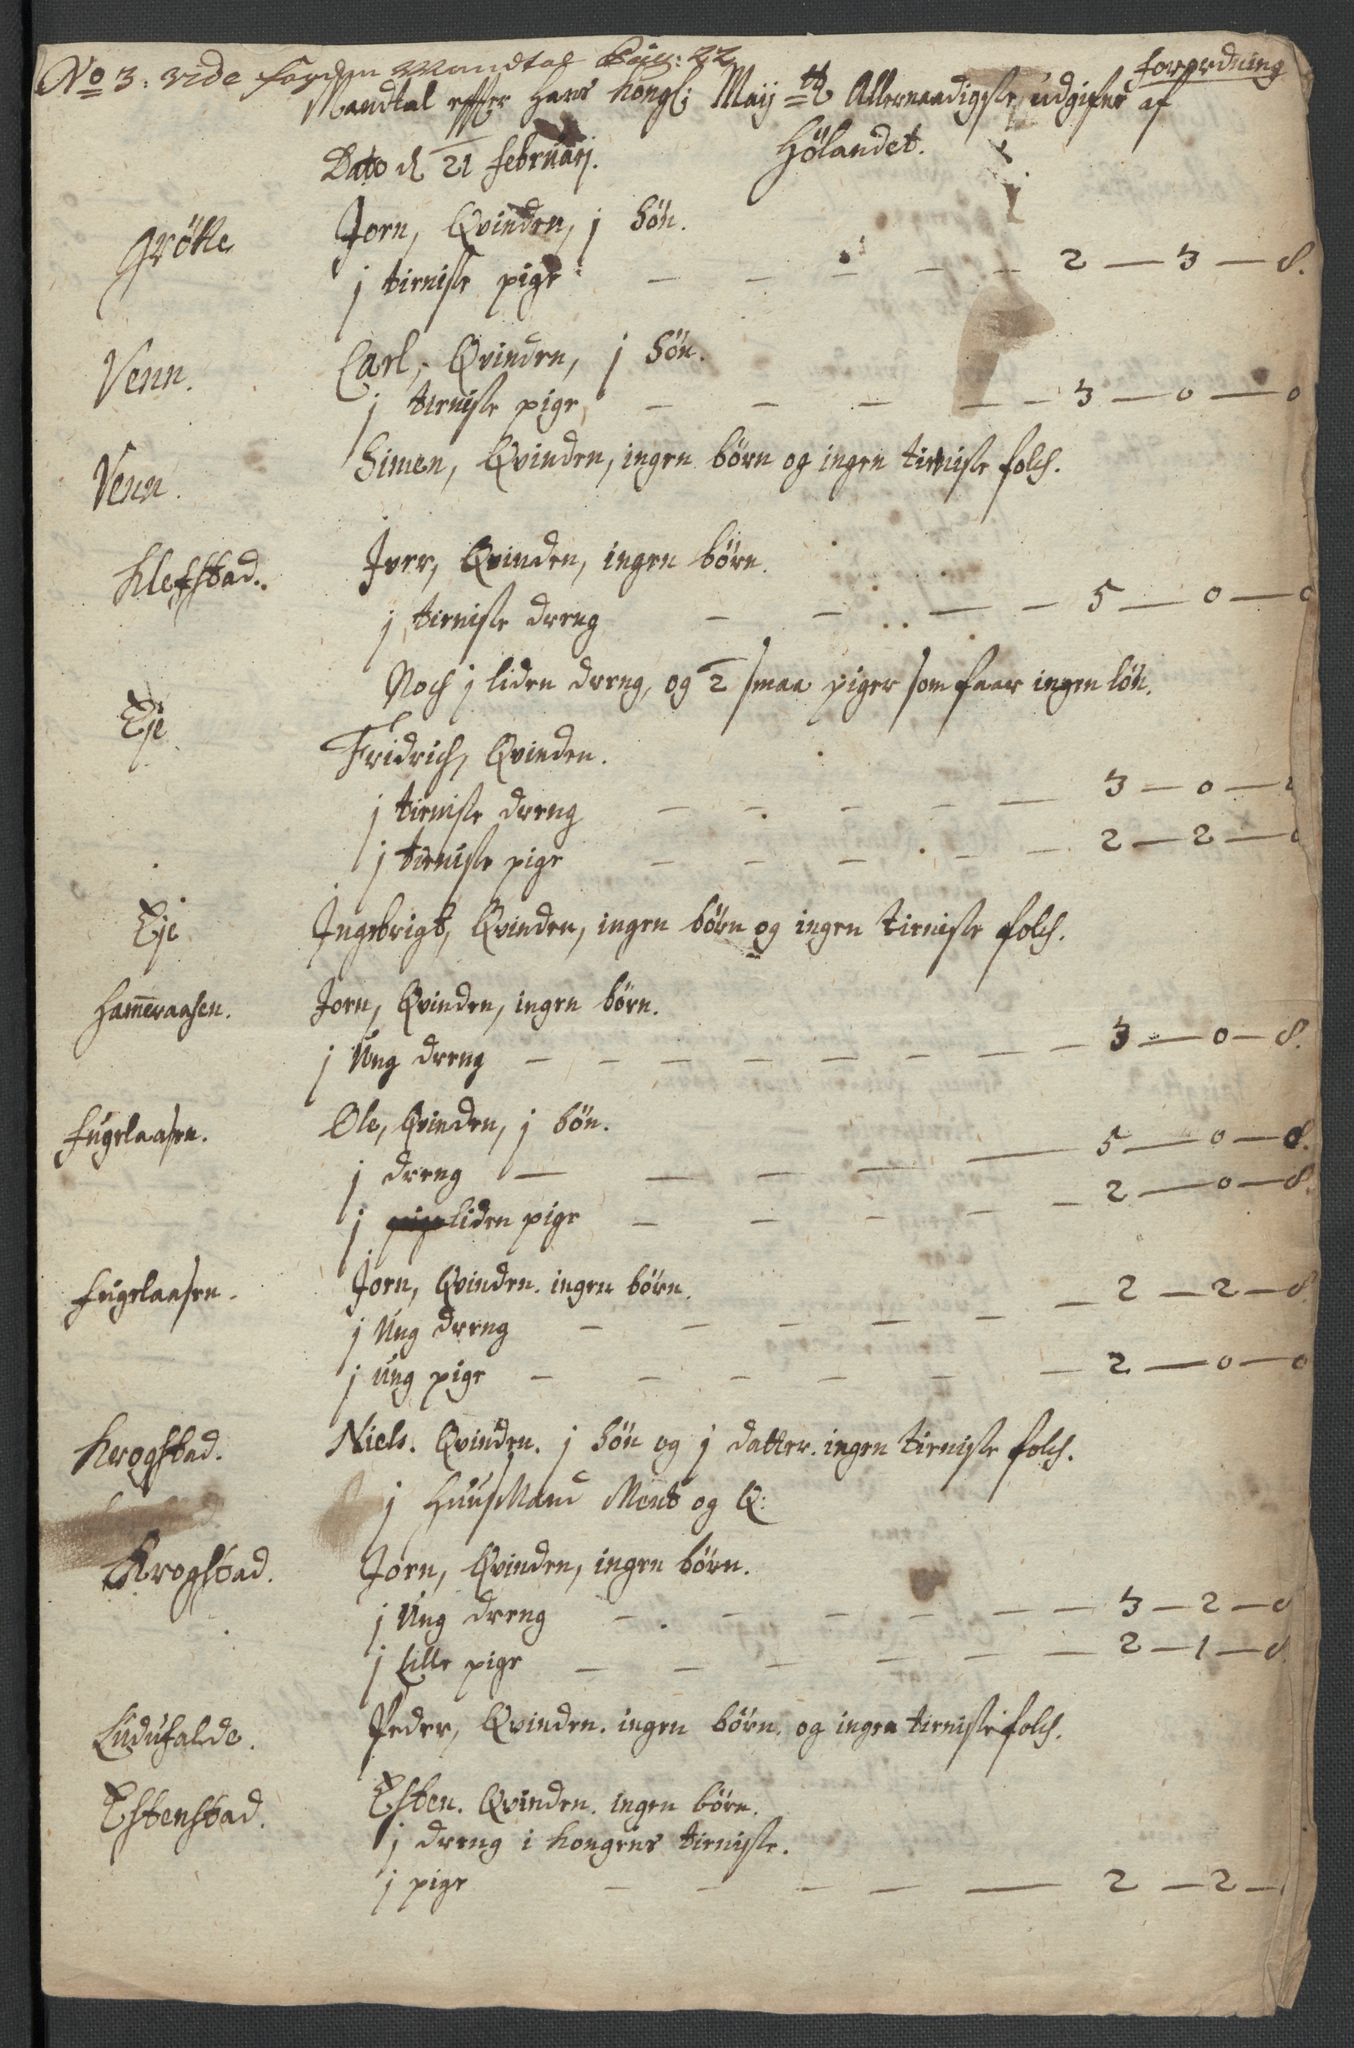 No 3: vide Fogden Mandtal Pag: 22
forordning
Mandtal effter Hans Kongl: Maij=tt Allernaadigste udgifne af
Dato d 21 februarj.
Hölandet.
Grötte Jorn, Qvinden, j Sön.
j tieniste pige — — — — — 2 — 3 — 8.
Venn. Carl, Qvinden, j Sön.
j tieniste pige — — — — — 3 — 0 — 0
Venn. Simen, Qvinden, ingen börn og ingen tieniste folch.
Klefstad. Iver, Qvinden, ingen börn.
j tieniste dreng — — — — 5 — 0 — 0
Noch j liden dreng, og 2 smaa piger som faar ingen lön.
Eje Fridrich, Qvinden.
j tieniste dreng — — — — — 3 — 0 —
j tieniste pige — — — — — 2 — 2 — 0
Eje Ingebrigt, Qvinden, ingen börn og ingen tieniste folch.
Hammeraasen. Jorn, Qvinden, ingen börn.
j Ung dreng — — — — — — — — — 3 — 0 — 8.
fugelaasen. Ole, Qvinden, j Sön.
j dreng — — — — — 5 — 0 — 8.
j liden pige — — — — — 2 — 0 — 8.
fugelaasen. Jorn, Qvinden. ingen börn.
j Ung dreng — — — — — — 2 — 2 — 8.
j ung pige — — — — — — 2 — 0 — 0
Krogstad. Niels. Qvinden. j Sön og j datter. ingen tieniste folch.
j Huusmand Ment og Q:
Krogstad. Jorn, Qvinden, ingen börn.
j Ung dreng — — — — — — 3 — 2 — 0
j Lille pige — — — — — — 2 — 1 — 8
Ludufalde. Peder, Qvinden. ingen börn. og ingen tieniste folch.
Estenstad. Esten. Qvinden. ingen börn.
j dreng i Kongens tieniste.
j pige — — — — — 2 — 2 —